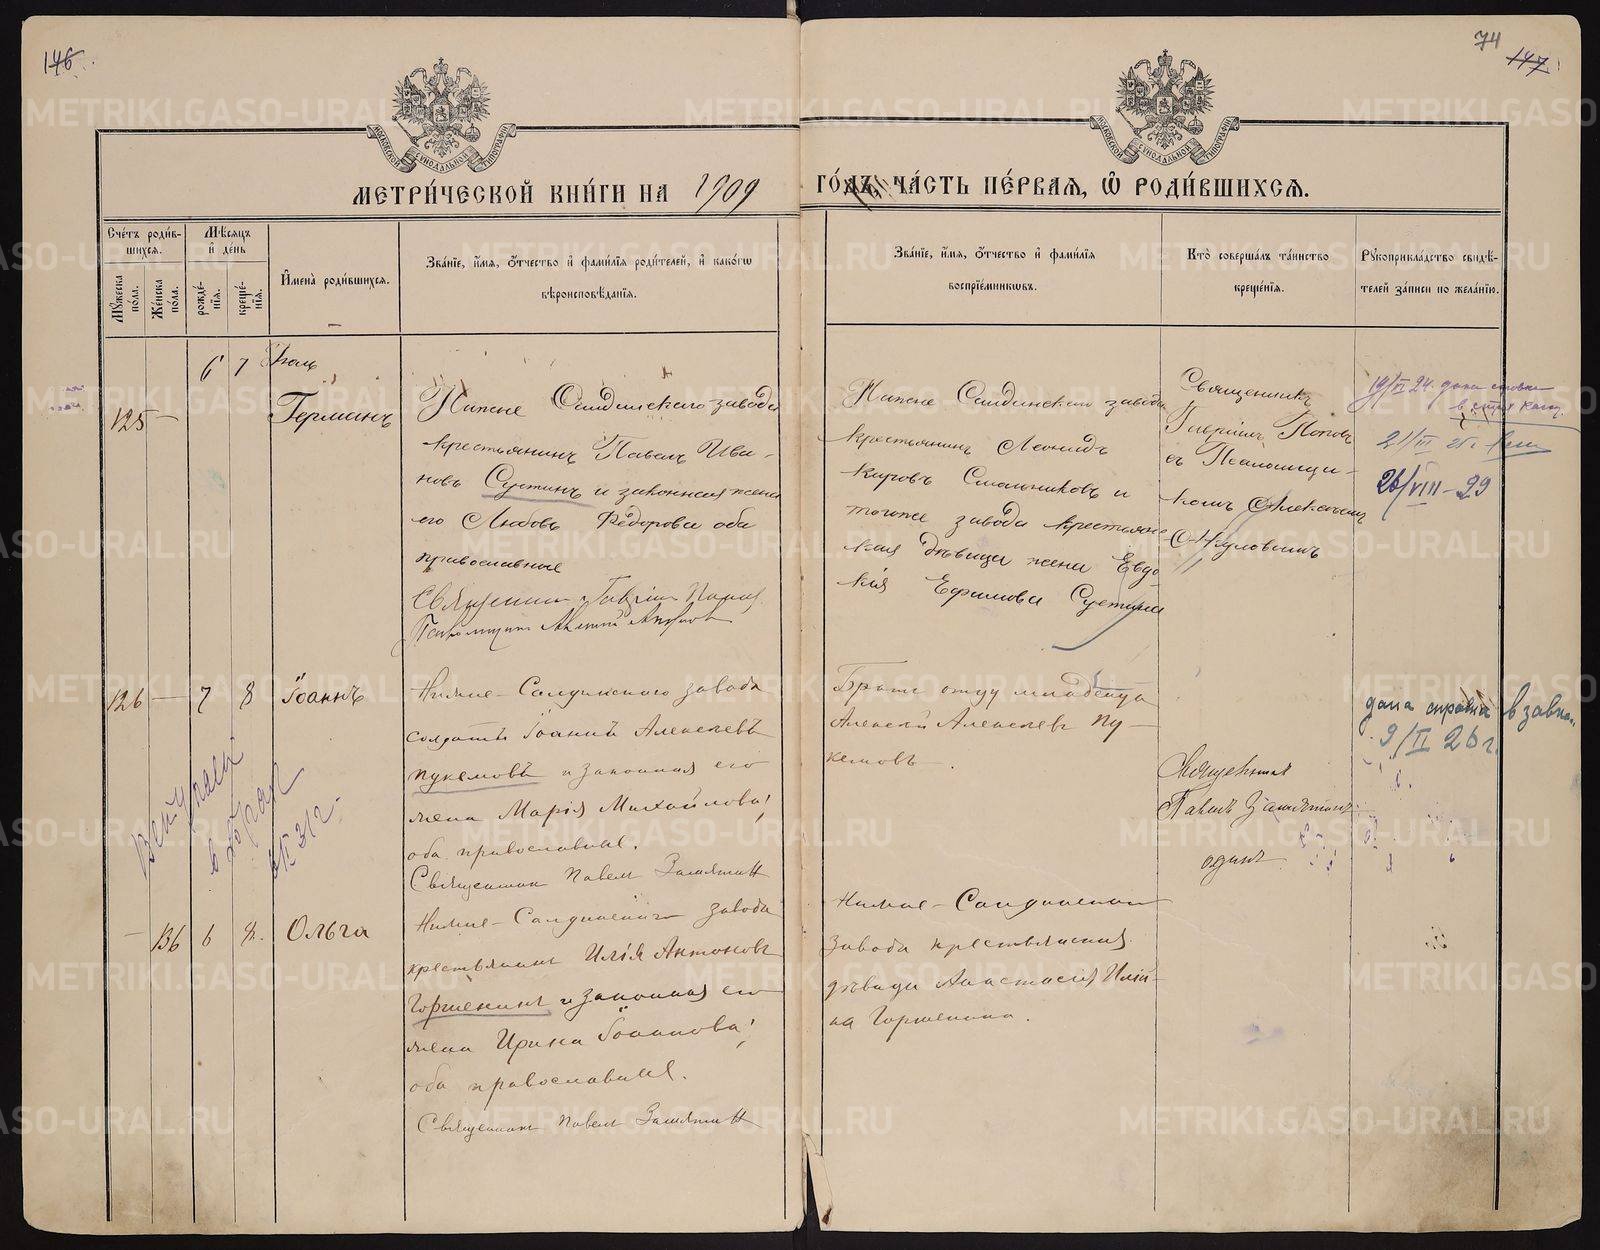 146
74
147
МОСКОВСКОЙ СѴНОДАЛЬНОЙ ТИПОГРАФІИ
МОСКОВСКОЙ СѴНОДАЛЬНОЙ ТИПОГРАФІИ
МЕТРИ́ЧЕСКОЙ КНИ́ГИ НА 1909 ГО́ДЪ, ЧА́СТЬ ПЕ́РВАѦ, Ѡ҆ РОДИ́ВШИХСѦ.
Сче́тъ роди́вшихсѧ.
Мꙋ́жеска по́ла.
Же́нска по́ла.
Мѣ́сѧцъ и҆ де́нь
рожде́нїѧ.
креще́нїѧ.
И҆мена̀ роди́вшихсѧ.
Зва́нїе, и҆́мѧ, ѻ҆́тчество и҆ фами́лїѧ роди́телей, и҆ како́гѡ
вѣроисповѣ́данїѧ.
Зва́нїе, и҆́мѧ, ѻ҆́тчество и҆ фами́лїѧ
воспрїе́мникѡвъ.
Кто̀ соверша́лъ та́инство
креще́нїѧ.
Рꙋкоприкла́дство свидѣ́-
телей за́писи по жела́нїю.
6 7
125 — Германъ
Нижне Салдинскаго завода
крестьянинъ Павелъ Ива-
новъ Сустинъ и законная жена
его Любовь Фёдорова оба
православные
Священник Гавріил Попов
Псаломщик
Нижне Салдинскаго завода
крестьянинъ Леонидъ
Карповъ Смольниковъ и
тогоже завода крестьянс-
кая дѣвица Евдо-
кія Ефимова Сустина
Священникъ
Гавріилъ Поповъ
съ Псаломщи-
комъ Алексѣемъ
19/XI 24 дана справка
в страх касу.
21/III 25 г.
26/VIII-29
126 — 7 8 Іоаннъ
Нижне-Салдинскаго завода
солдатъ Іоаннъ Алексѣевъ
Пукемовъ и законная его
жена Марія Михайлова,
оба православные.
Священник Павел Замятин
Братъ отцу младенца
Алексѣй Алексѣевъ Пу-
кемовъ.
Священникъ
Павелъ Замятинъ
одинъ
дана справка в завком
9/II 26 г.
в брак
31 г.
— 136 6 8. Ольга
Нижне-Салдинскаго завода
крестьянинъ Илія Антоновъ
Горшенинъ и законная его
жена Ирина Іоаннова,
оба православные.
Священник Павел Замятин
Нижне-Салдинскаго
завода крестьянская
дѣвица Анастасія Иліи-
на Горшенина.
METRIKI.GASO-URAL.RU